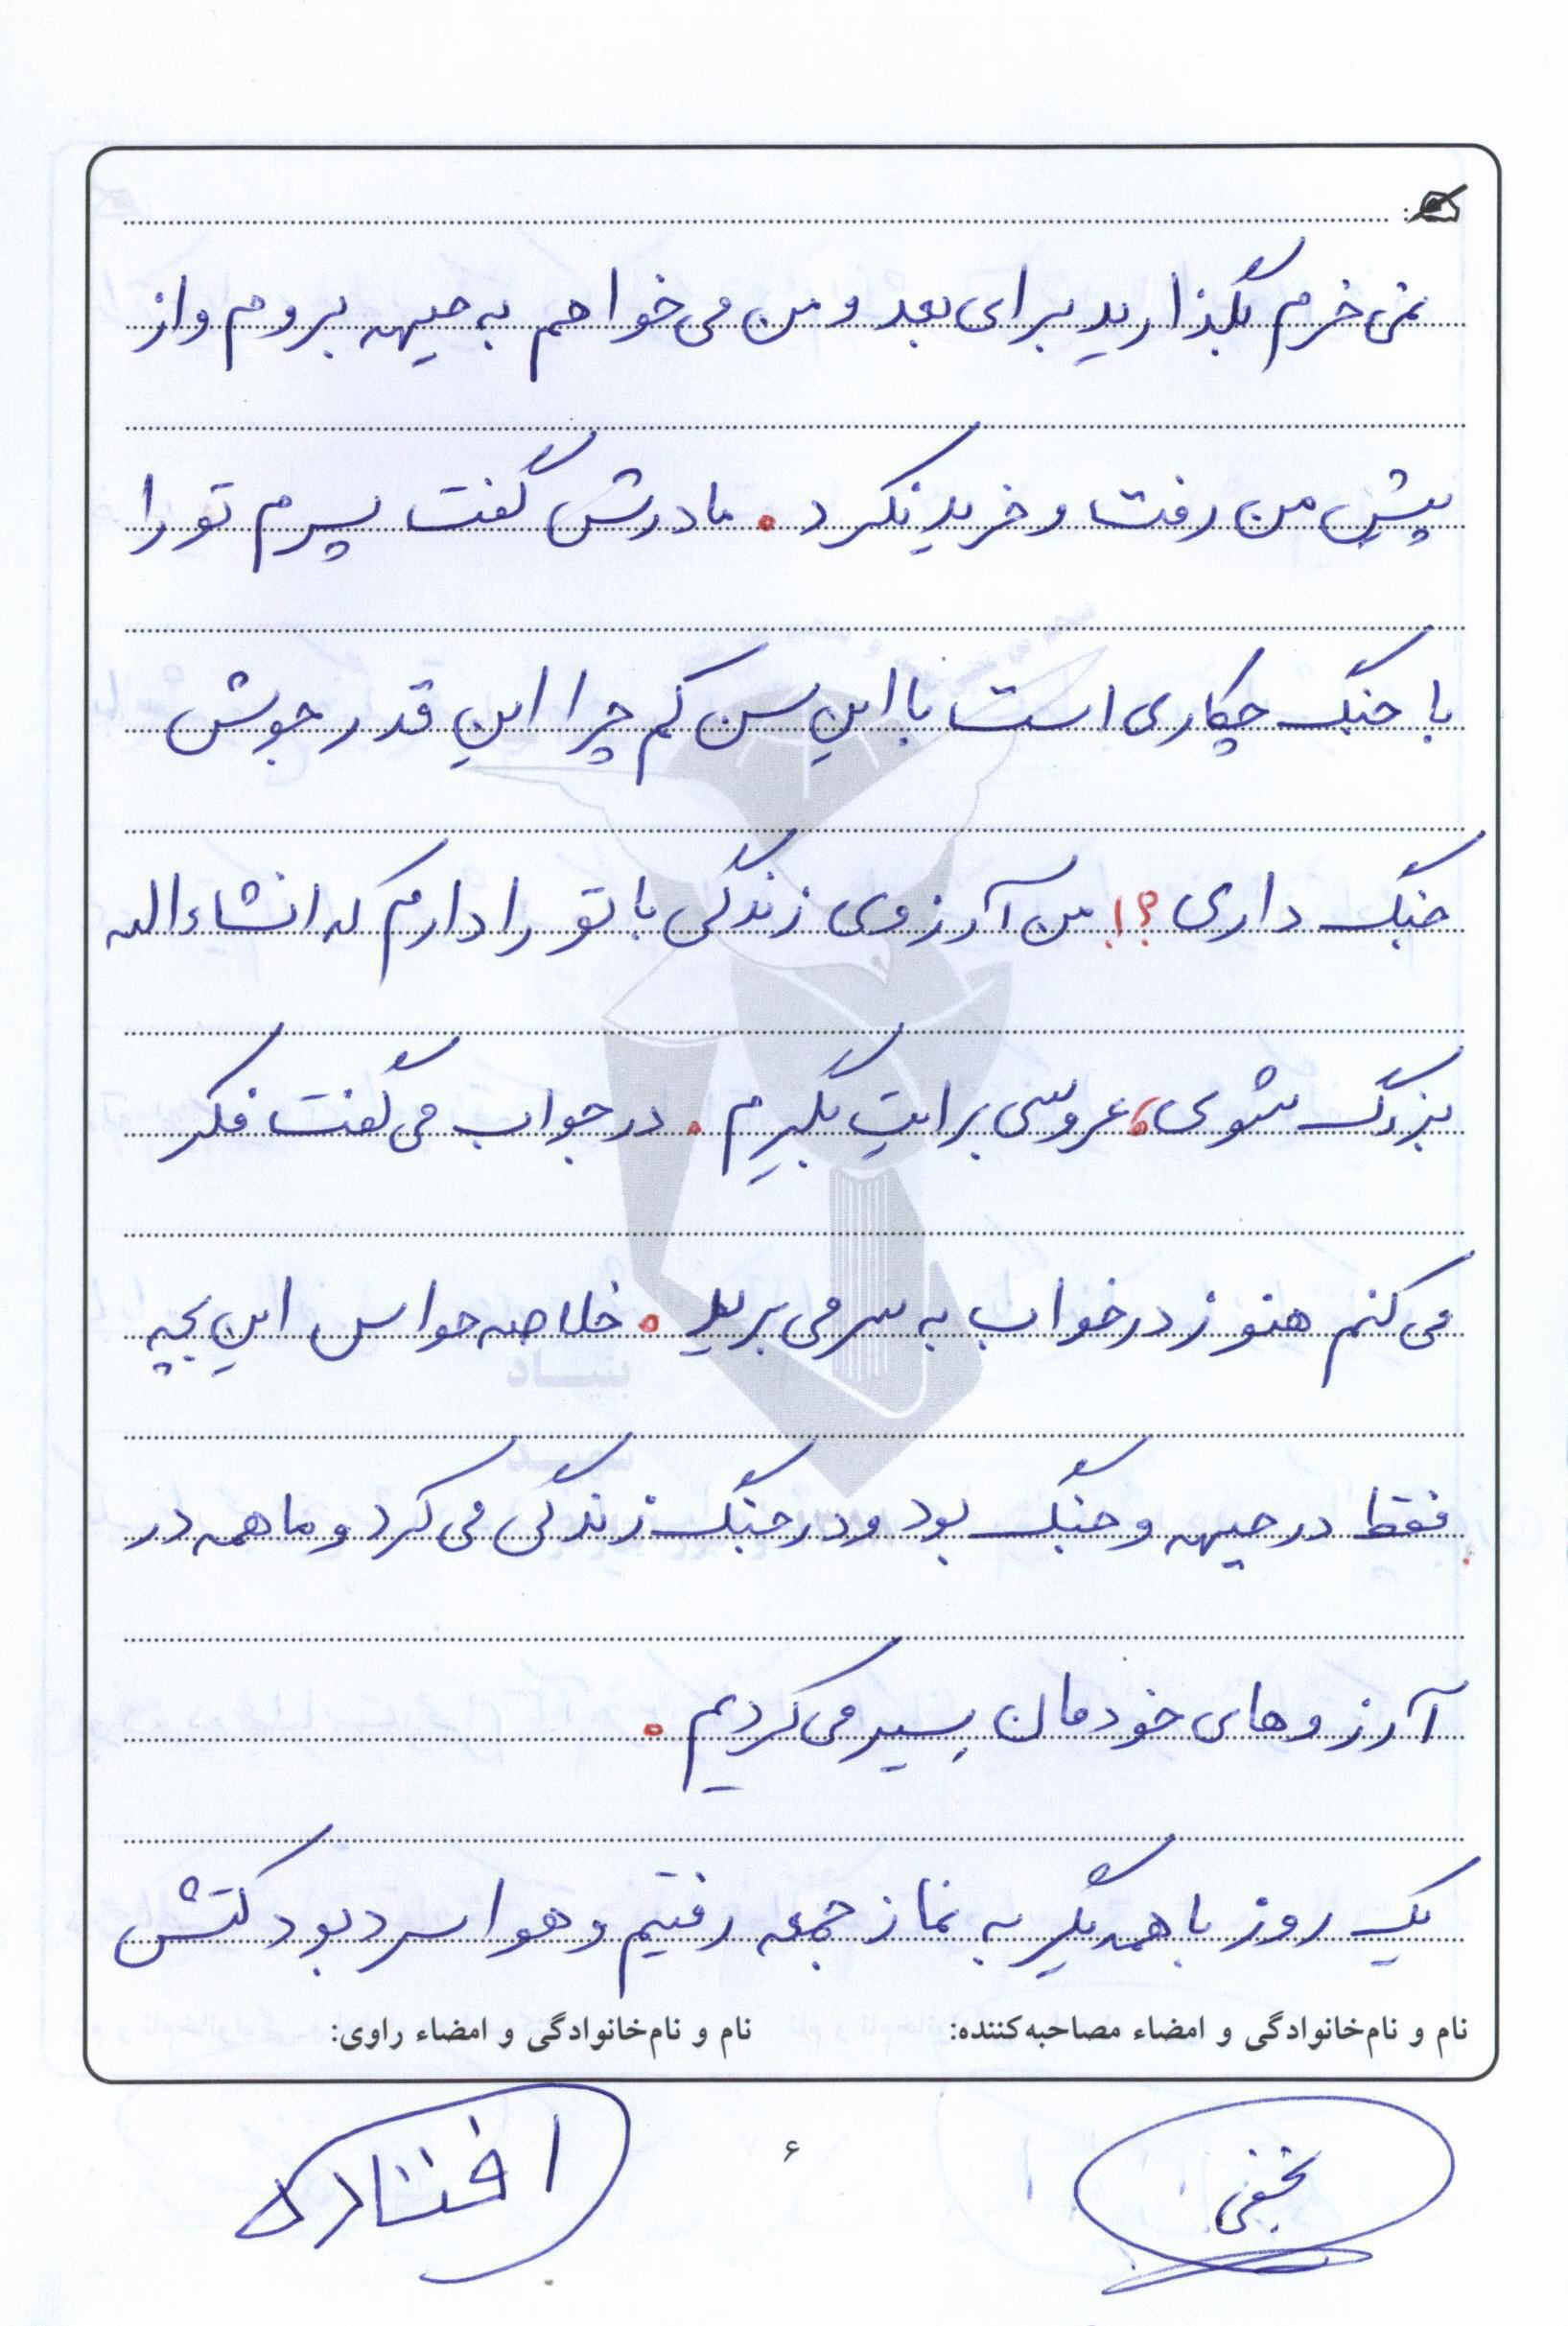 نمی‌خرم بگذارید برای بعد و من می‌خواهم به جبهه بروم و از
پیش من رفت و خرید نکرد. مادرش گفت پسرم تو را
با جنگ چکاری است با این سن کم چرا این قدر جوش
جنگ داری؟! من آرزوی زندگی با تو را دارم که انشاءالله
بزرگ شوی، عروسی برایت بگیرم. در جواب می‌گفت فکر
می‌کنم هنوز در خواب به سر می‌برید. خلاصه حواس این بچه
فقط در جبهه و جنگ بود و در جنگ زندگی می‌کرد و ما همه در
آرزوهای خودمان سیر می‌کردیم.
یک روز با همدیگر به نماز جمعه رفتیم و هوا سرد بود کتش
نام و نام‌خانوادگی و امضاء مصاحبه‌کننده: نام و نام‌خانوادگی و امضاء راوی:
نجفی ۶ افتاده
بنیاد
شهید